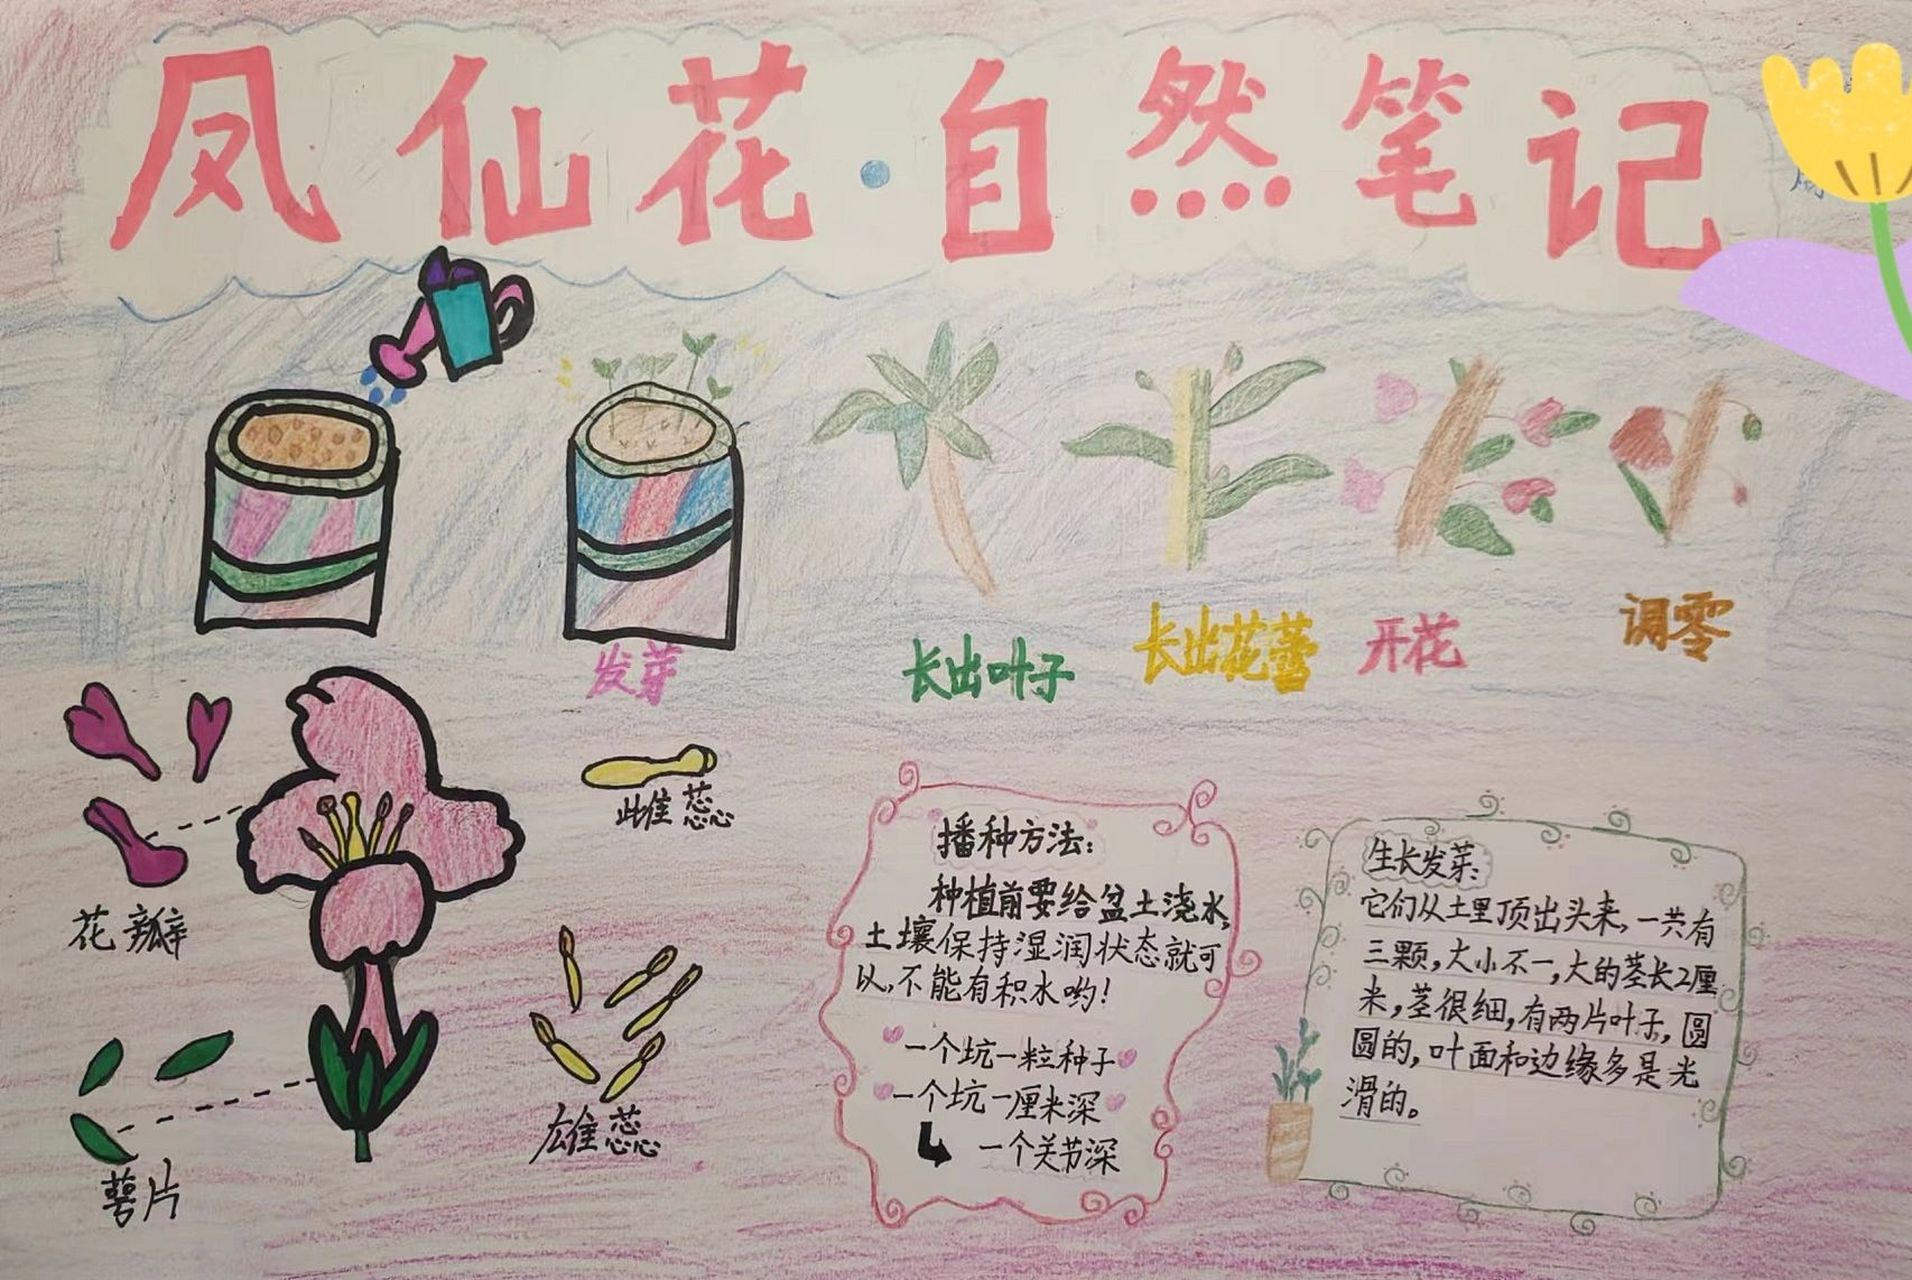 凤仙花·自然笔记
发芽
长出叶子
长出花蕾
开花
调零
花瓣
萼片
雌蕊
雄蕊
播种方法:
种植前要给盆土浇水,
土壤保持湿润状态就可
以,不能有积水哟!
一个坑一粒种子
一个坑一厘米深
一个关节深
生长发芽:
它们从土里顶出头来,一共有
三颗,大小不一,大的茎长2厘
米,茎很细,有两片叶子,圆
圆的,叶面和边缘多是光
滑的。